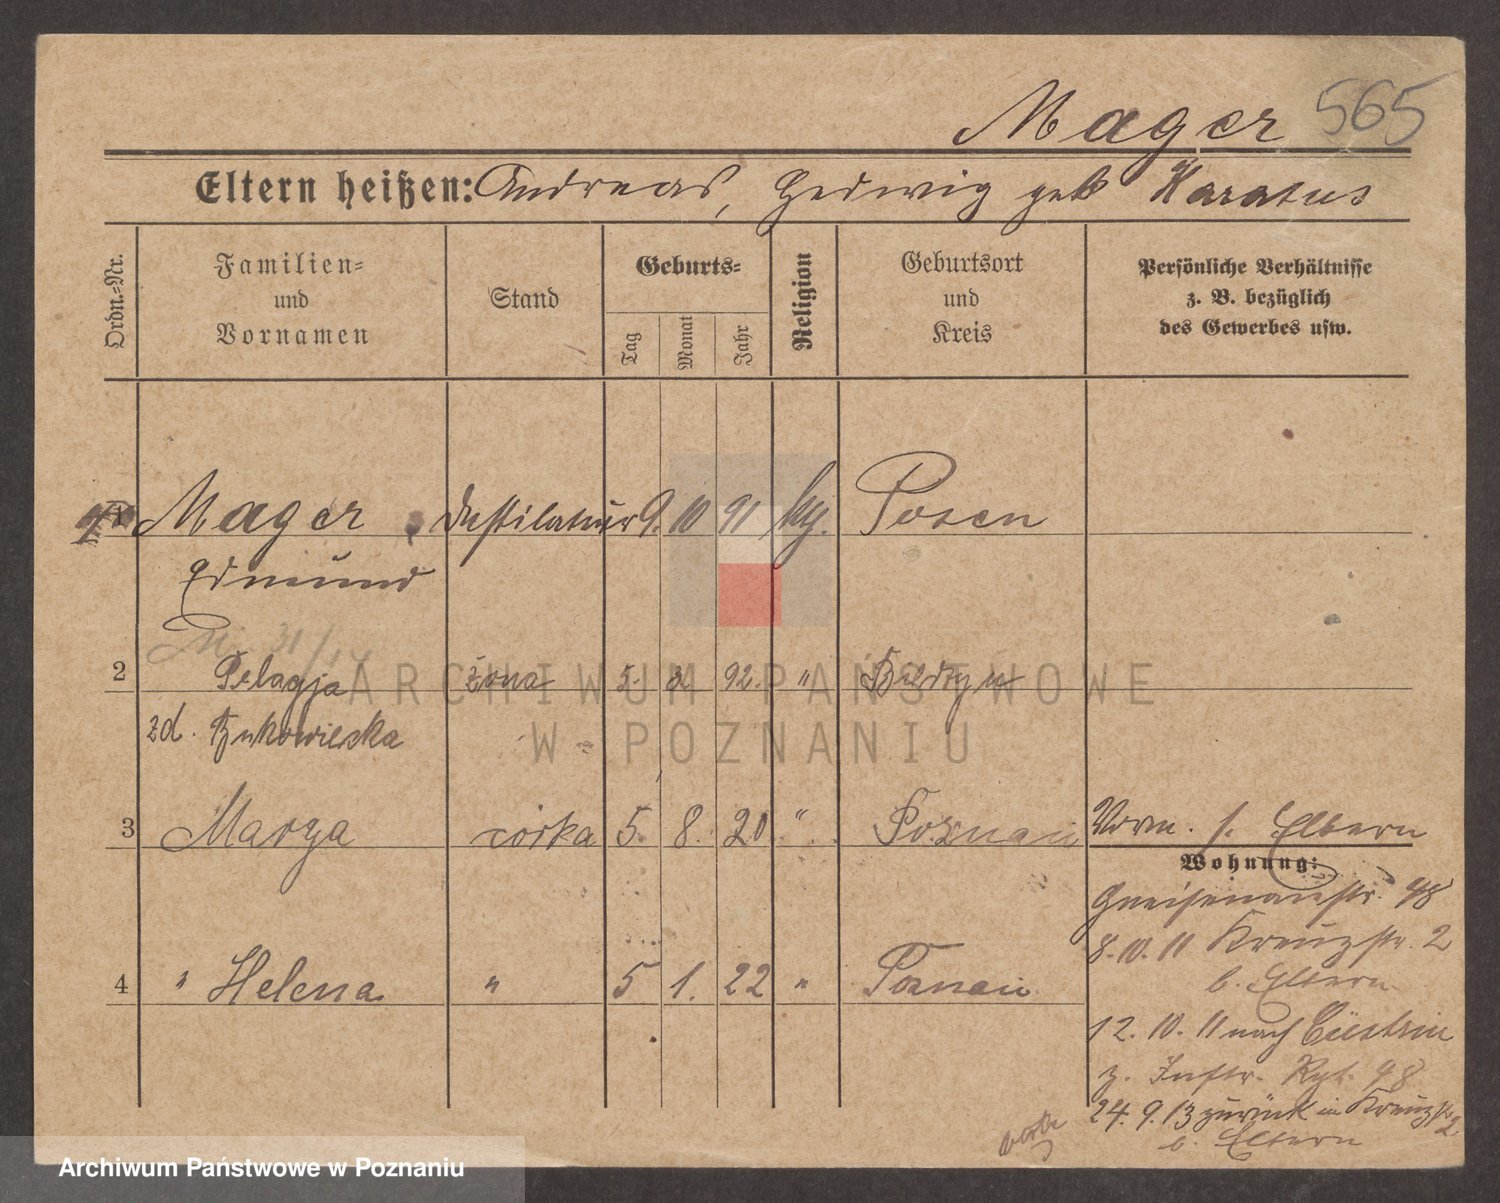 Mager 565
Eltern heißen: Andreas, Hedwig geb Karatus
Ordn.=Nr.
Familien=
und
Vornamen
Stand
Geburts=
Tag
Monat
Jahr
Religion
Geburtsort
und
Kreis
Persönliche Verhältnisse
z. B. bezüglich
des Gewerbes usw.
1 Mager Destilateur 9. 10 91 kg. Posen
Edmund
2 Pelagja żona 5. 3. 92. "
zd.
3 Marya córka 5. 8. 20 " Poznań
Vorm. s. Eltern
Wohnung:
Gneisenaustr. 48
8.10.11 Kreuzstr. 2
b. Eltern
4 " Helena " 5 1. 22 " Poznań
12. 10. 11 nach Cüstrin
z. Inftr. Rgt. 48
24. 9. 13 zurück in Kreuzstr 2
b. Eltern
ARCHIWUM PAŃSTWOWE
W POZNANIU
Archiwum Państwowe w Poznaniu